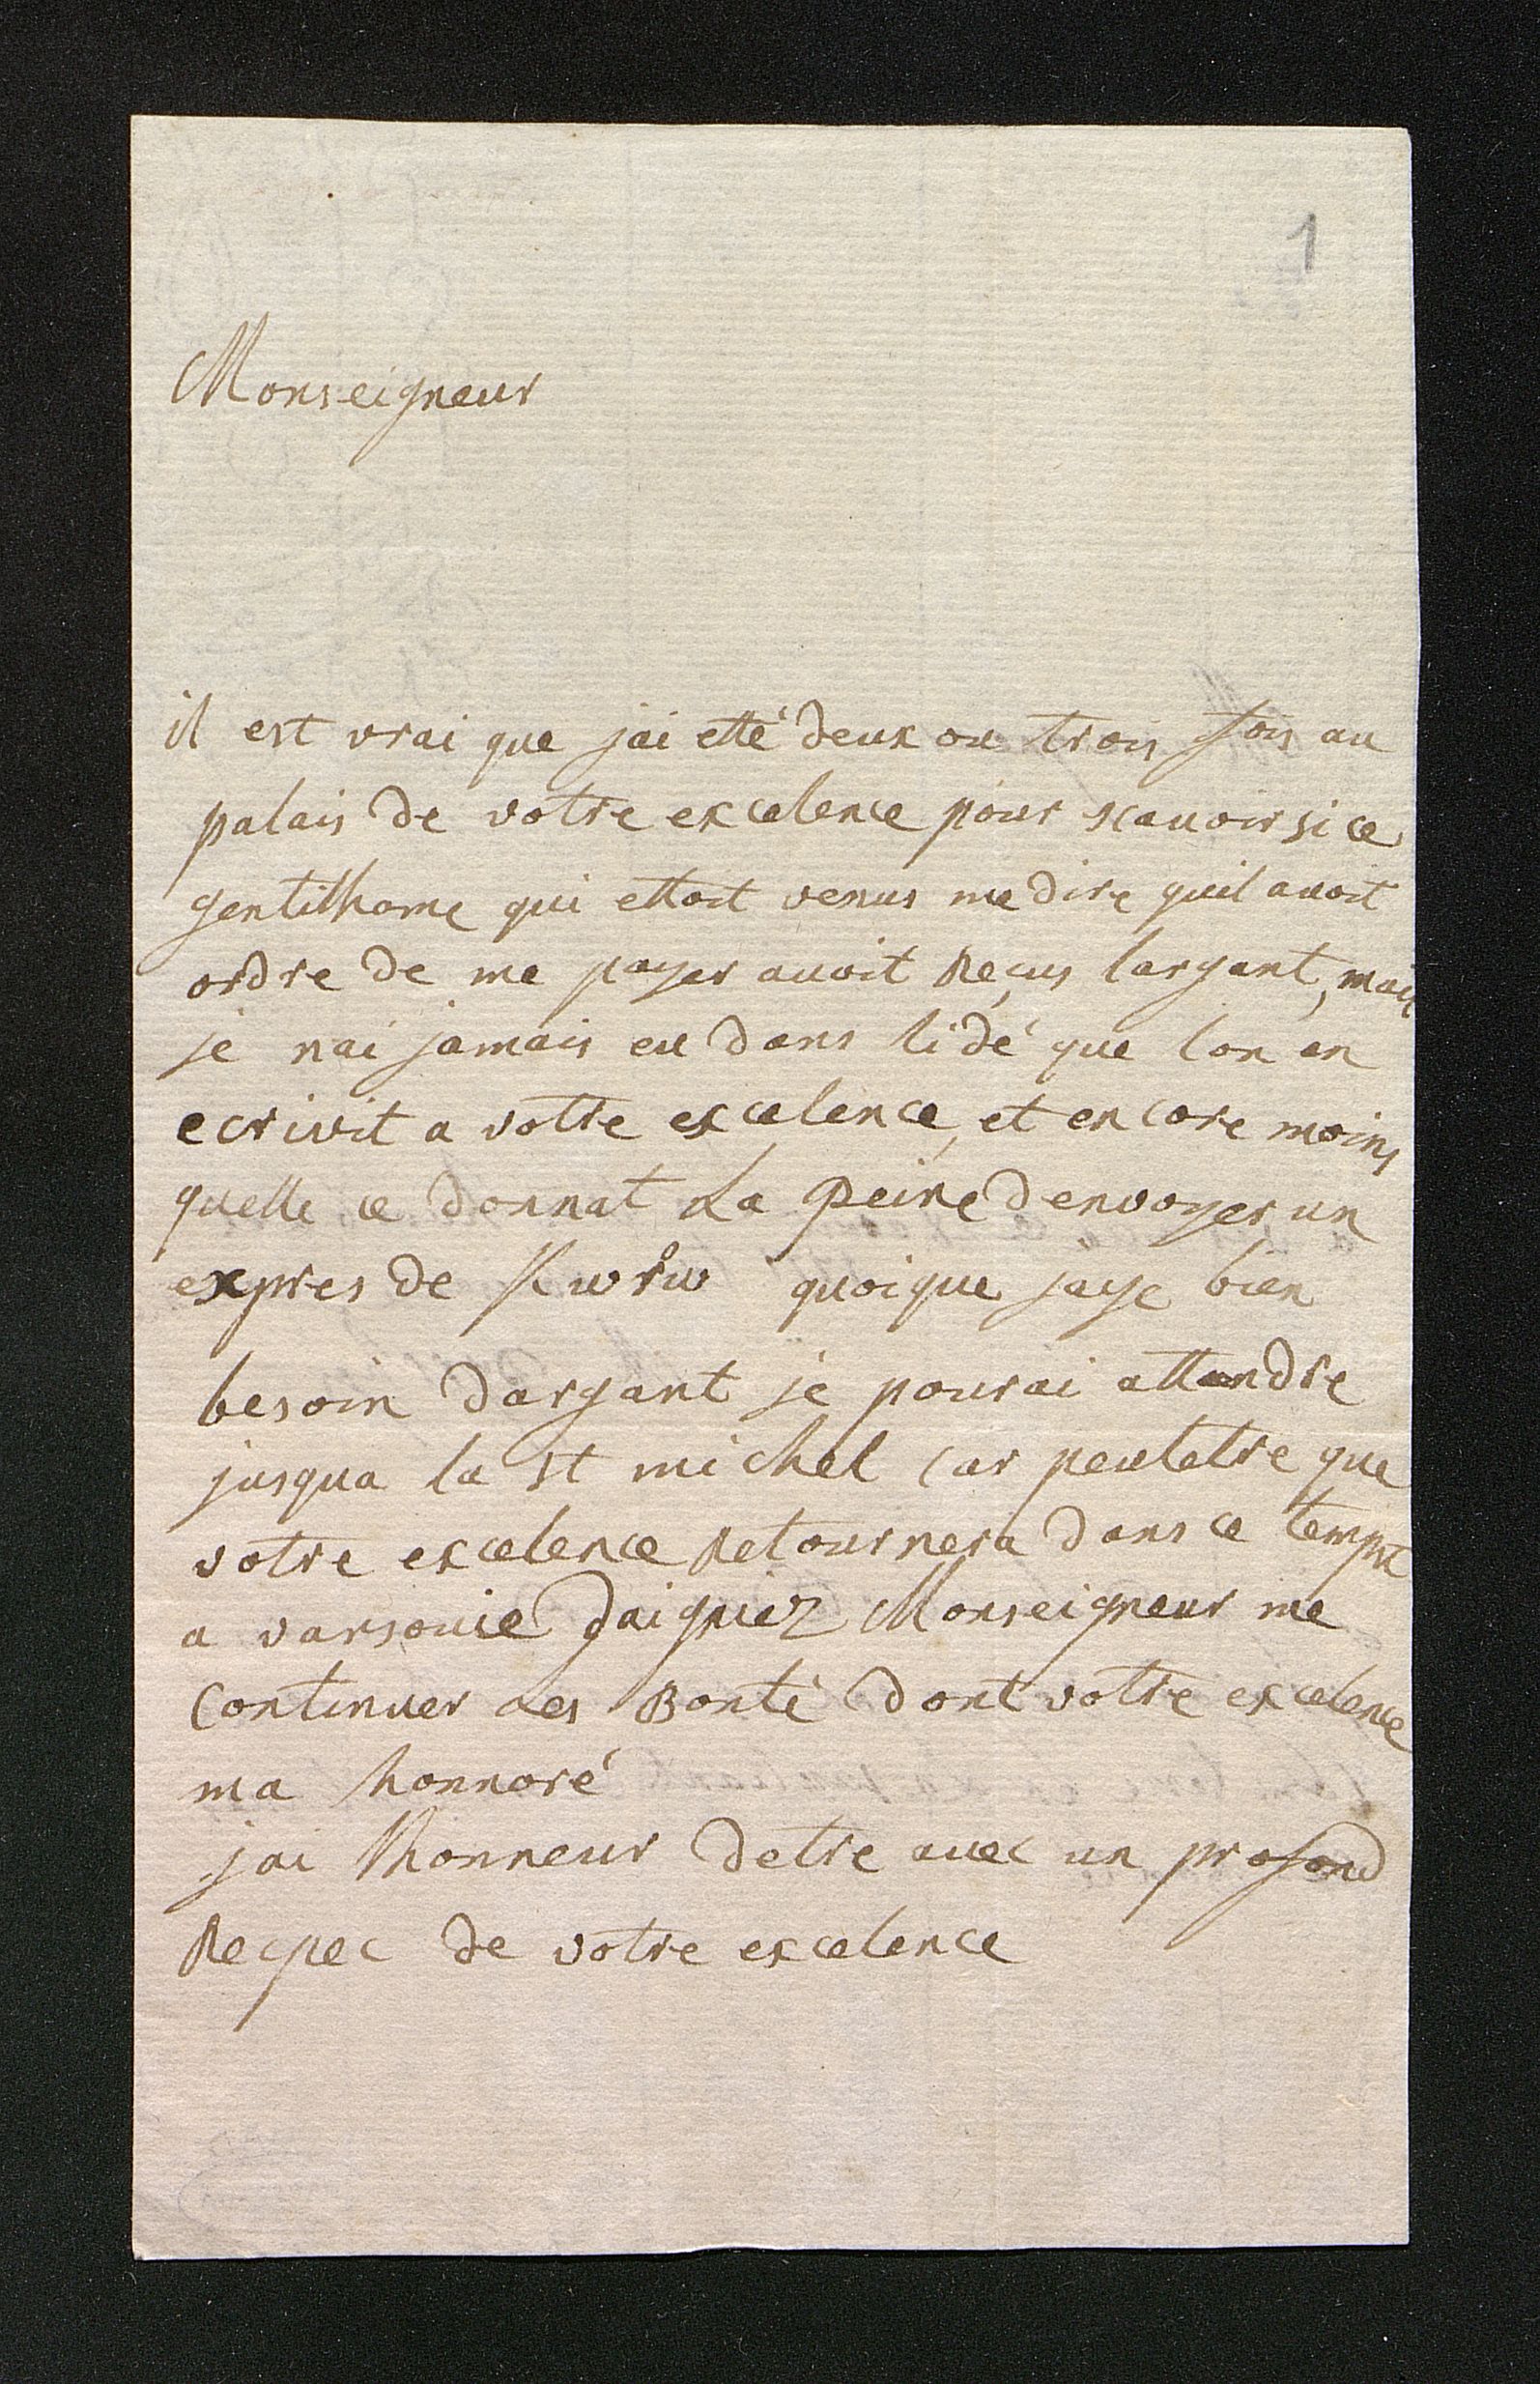 1
Monseigneur
il est vrai que jai etté deux ou trois fois au
palais de votre excelence pour scauoir si ce
gentilhome qui ettoit venus me dire quil auoit
ordre de me payer auoit Reçus largant, mais
je nai jamais eu dans lidé que lon en
ecrivit a votre excelence, et encore moins
quelle ce donnat La peine denvoyer un
expres de Kurów quoique jaye bien
besoin dargant je pourai attandre
jusqua la st michel car peutetre que
votre excelence Retournera dans ce tempt
a varsouie Daigniez Monseigneur me
continuer Les Bonté dont votre excelence
ma honnoré
jai lhonneur detre auec un profond
Recpec de votre excelence